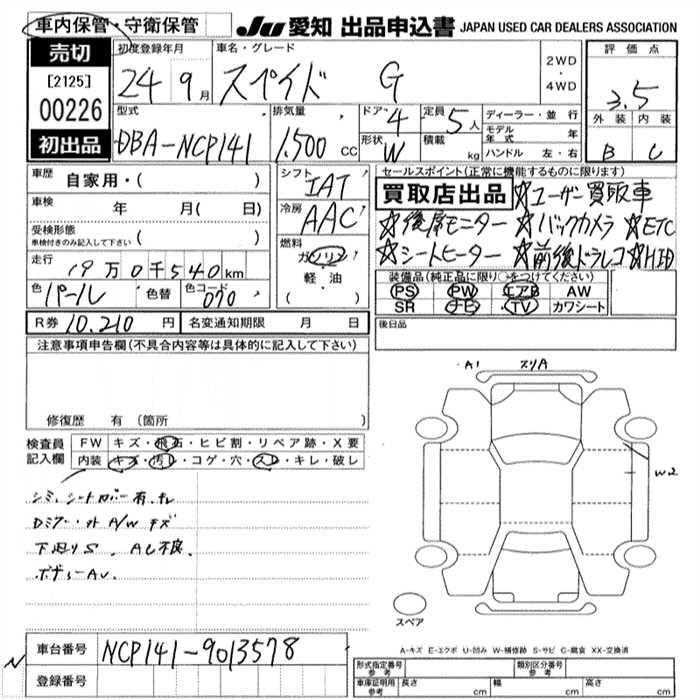 車内保管・守衛保管
JU 愛知 出品申込書 JAPAN USED CAR DEALERS ASSOCIATION
売切
[2125]
00226
初出品
初度登録年月
24 9月
車名・グレード
スペイド G
2WD
・
4WD
評価点
3.5
外装 内装
B C
型式
DBA-NCP141
排気量
1,500 CC
ドア 4
形状 W
定員 5人
積載 kg
ディーラー・並行
モデル年式 年
ハンドル 左・右
車歴
自家用・( )
車検
年 月( 日)
受検形態
車検付きのみ記入して下さい ( )
走行
19万0千540km
色 パール 色替 色コード 070
シフト
IAT
冷房
AAC
燃料
ガソリン
軽油
( )
R券 10,210 円 名変通知期限 月 日
セールスポイント(正常に機能するものに限ります)
買取店出品 ☆ユーザー買取車
☆後席モニター ☆バックカメラ ☆ETC
☆シートヒーター ☆前後ドラレコ ☆HID
装備品(純正品に限り○をつけてください)
PS PW エアB AW
SR ナビ TV カワシート
後日品
注意事項申告欄(不具合内容等は具体的に記入して下さい)
修復歴 有 (箇所
検査員記入欄
FW キズ・飛石・ヒビ割・リペア跡・X要
内装 キズ・汚レ・コゲ・穴・スレ・キレ・破レ
シミ、シートカバー有、キレ
Dミラー・外 A/W キズ
下廻りS、AC不良、
ボデーAU、
A1 スリA
W2
スペア
A-キズ E-エクボ U-凹み W-補修跡 S-サビ C-腐食 XX-交換済
車台番号 NCP141-9013578
登録番号
N
形式指定番号 参考
類別区分番号 参考
車庫証明用 参考 長さ cm 幅 cm 高さ cm